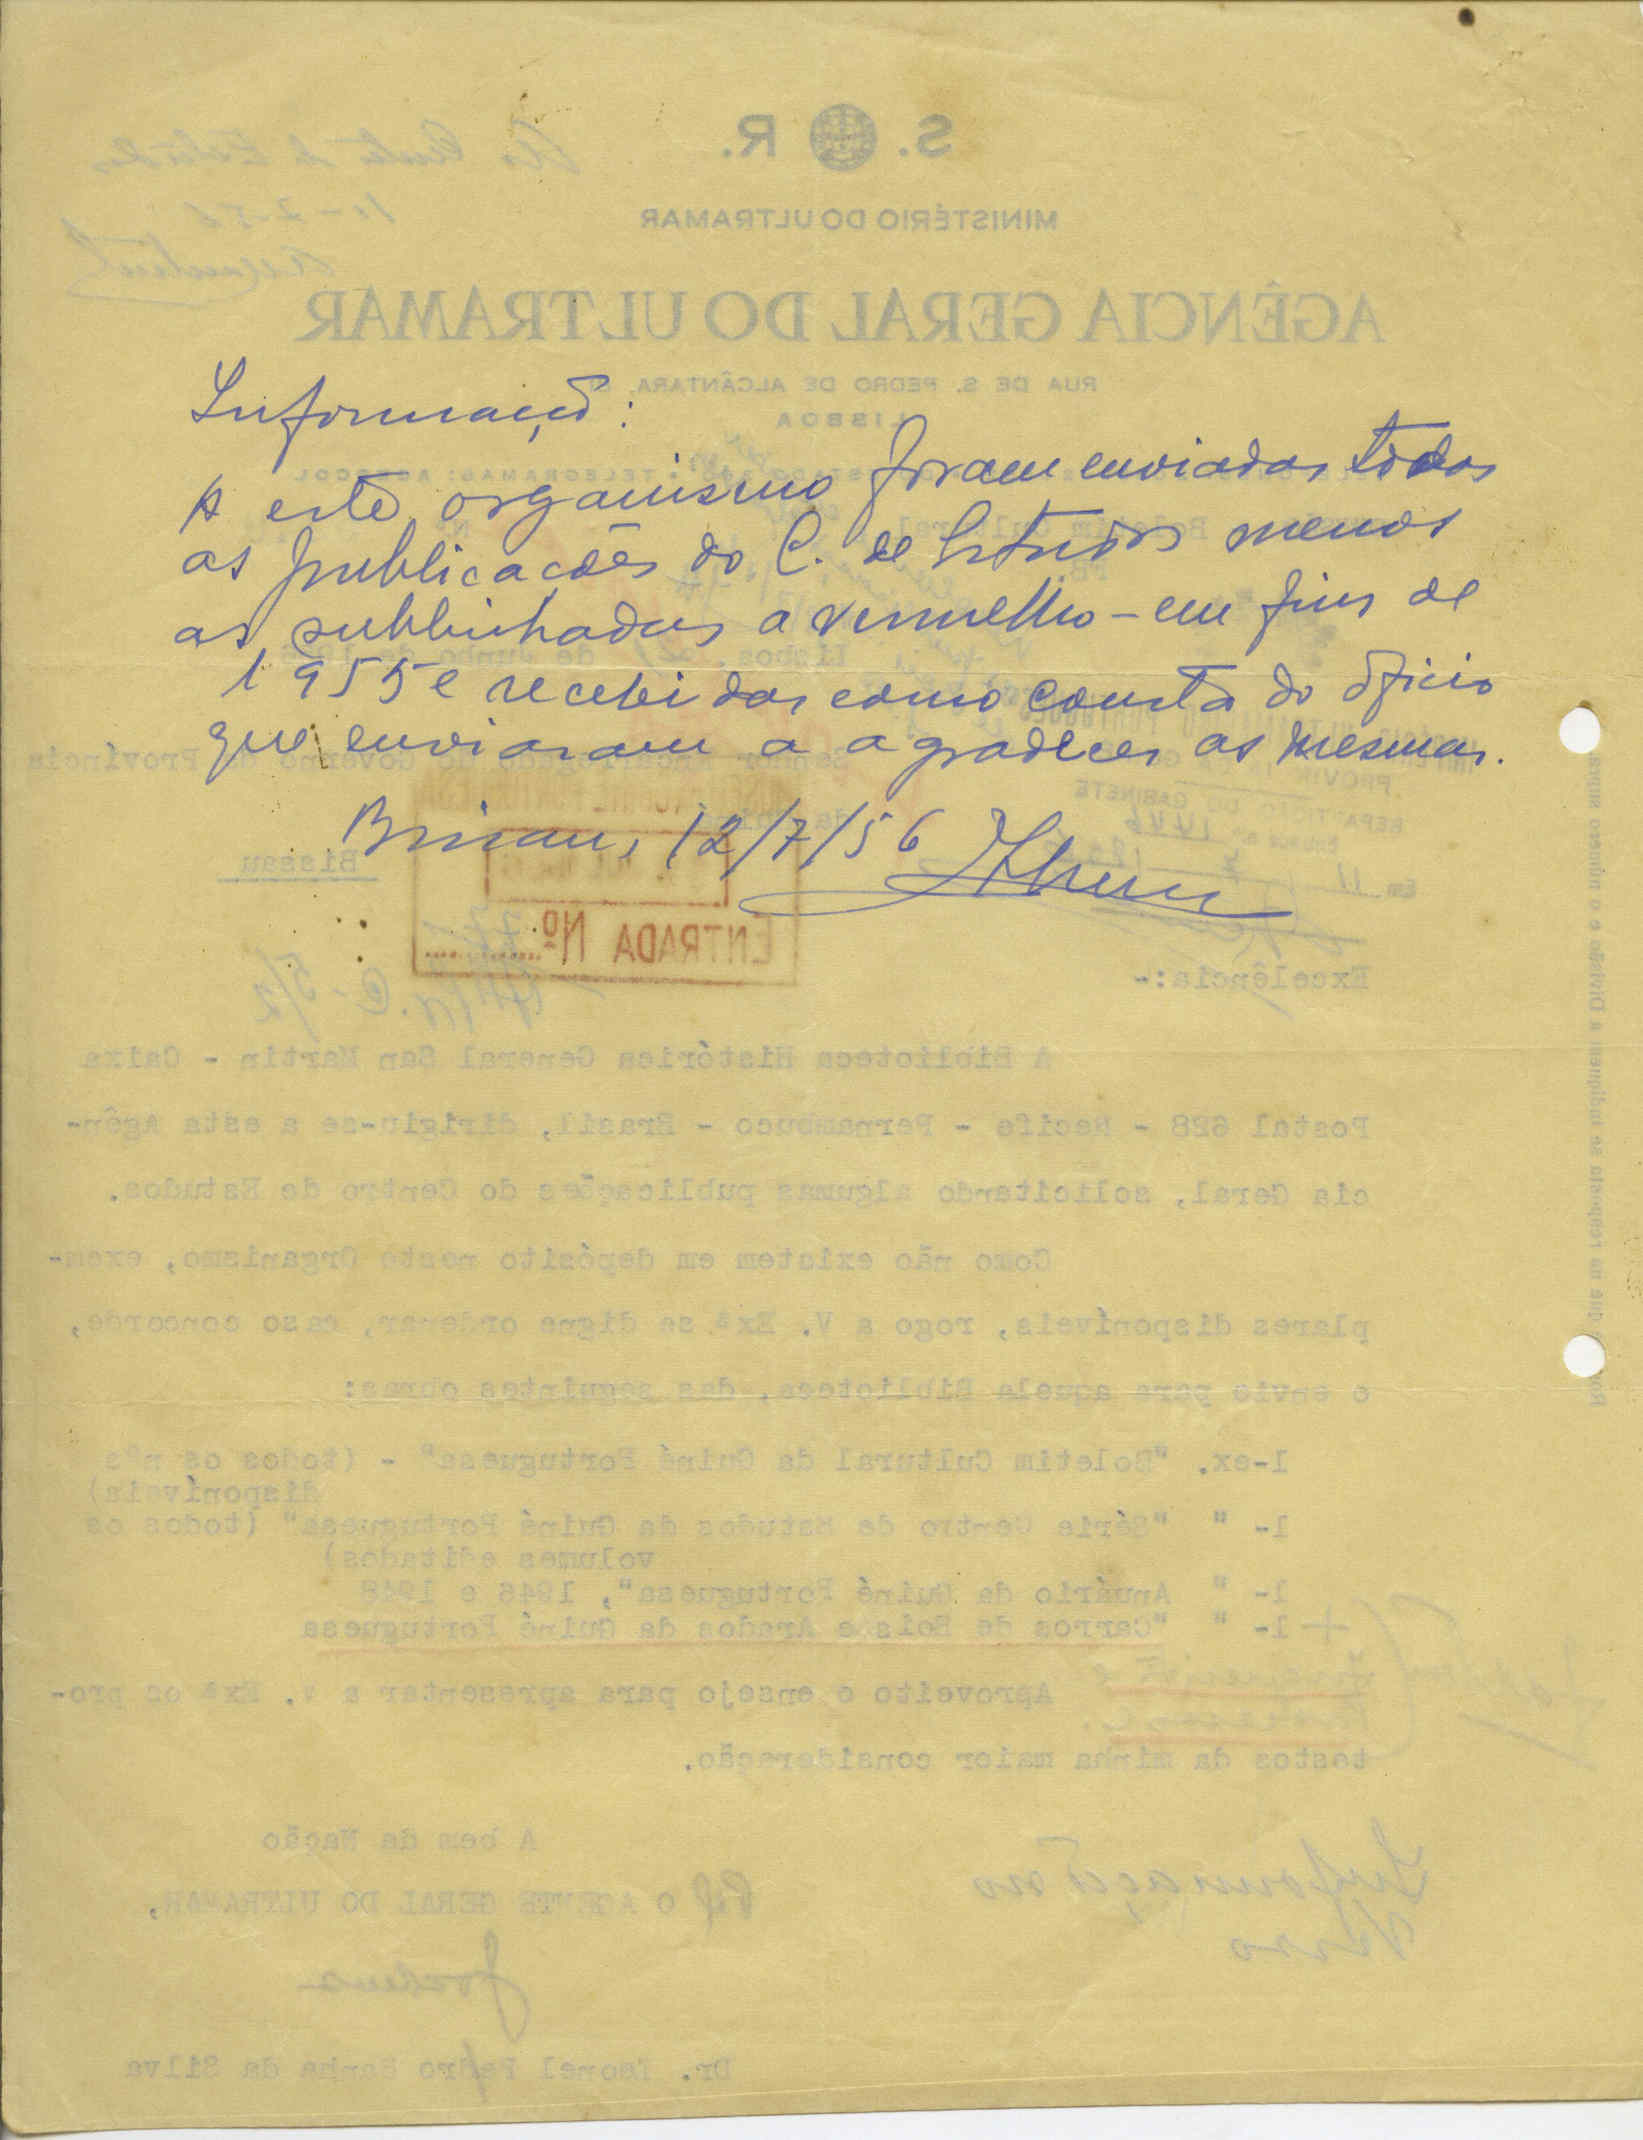 S. R.
MINISTÉRIO DO ULTRAMAR
AGÊNCIA GERAL DO ULTRAMAR
RUA DE S. PEDRO DE ALCÂNTARA,
LISBOA
Informação:
A este organismo foram enviadas todas
as publicações do C. de Estudos menos
as sublinhadas a vermelho - em fins de
1955 e recebidas como consta do ofício
que enviaram a agradecer as mesmas.
Bissau, 12/7/56
Bissau
ENTRADA Nº
Excelência:-
A Biblioteca Histórica General San Martin - Caixa
Postal 628 - Recife - Pernambuco - Brasil, dirigiu-se a esta Agên-
cia Geral, solicitando algumas publicações do Centro de Estudos.
Como não existem em depósito neste Organismo, exem-
plares disponíveis, rogo a V. Exª se digne ordenar, caso concorde,
o envio para aquela Biblioteca, das seguintes obras:
1-ex. "Boletim Cultural da Guiné Portuguesa" - (todos os nºs
disponíveis)
1- " "Série Centro de Estudos da Guiné Portuguesa" (todos os
volumes editados)
1- " Anuário da Guiné Portuguesa", 1946 e 1948
+ 1- " "Carros de Bois e Arados da Guiné Portuguesa
Aproveito o ensejo para apresentar a V. Exª os pro-
testos da minha maior consideração.
A bem da Nação
Informação no
Verso
O AGENTE GERAL DO ULTRAMAR,
Dr. Leonel Pedro Banha da Silva